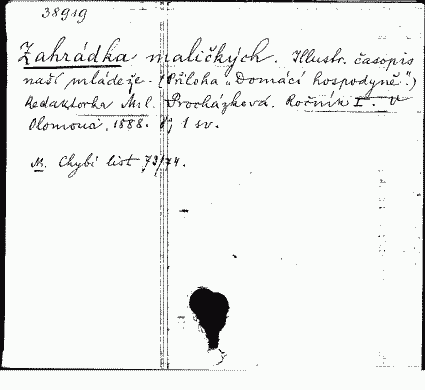 38919
Zahrádka maličkých. Illustr. časopis
naší mládeže. (Příloha „Domácí hospodyně".)
Redaktorka Mil. Procházková. Ročník I. V
Olomouci, 1888. 8; 1 sv.
M. Chybí list 73/74.